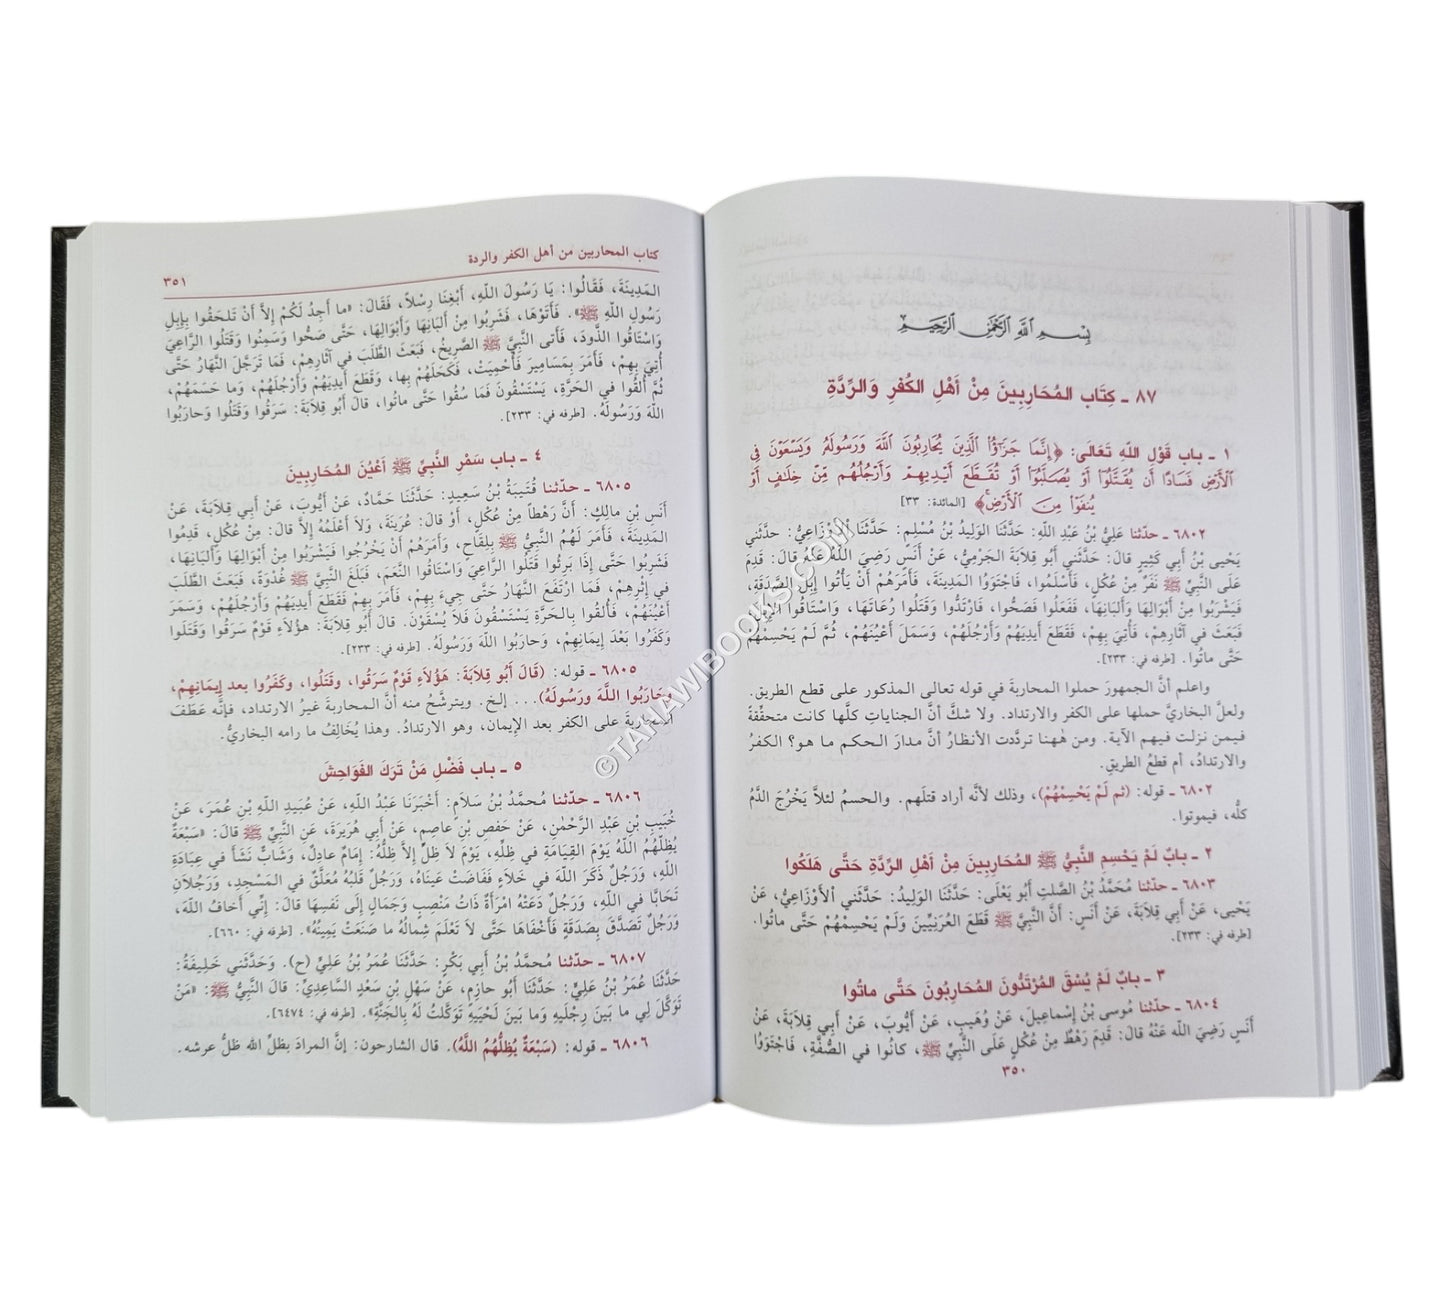 بِسْمِ اللَّهِ الرَّحْمَنِ الرَّحِيمِ
٨٧ ـ كِتَاب المُحَارِبِينَ مِنْ أَهْلِ الكُفْرِ وَالرِّدَّةِ
١ ـ باب قَوْلِ اللّهِ تَعَالَى: ﴿إِنَّمَا جَزَٰٓؤُا۟ الَّذِينَ يُحَارِبُونَ اللَّهَ وَرَسُولَهُۥ وَيَسْعَوْنَ فِى
ٱلْأَرْضِ فَسَادًا أَن يُقَتَّلُوٓا۟ أَوْ يُصَلَّبُوٓا۟ أَوْ تُقَطَّعَ أَيْدِيهِمْ وَأَرْجُلُهُم مِّنْ خِلَٰفٍ أَوْ
يُنفَوْا۟ مِنَ ٱلْأَرْضِ﴾ [المائدة: ٣٣]
٦٨٠٢ ـ حدّثنا عَلِيُّ بْنُ عَبْدِ اللّهِ: حَدَّثَنَا الوَلِيدُ بْنُ مُسْلِمٍ: حَدَّثَنَا الأَوْزَاعِيُّ: حَدَّثَني
يَحْيى بْنُ أَبي كَثِيرٍ قالَ: حَدَّثَني أَبُو قِلاَبَةَ الجَرْمِيُّ، عَنْ أَنَسٍ رَضِيَ اللّهُ عَنْهُ قالَ: قَدِمَ
عَلَى النَّبِيِّ ﷺ نَفَرٌ مِنْ عُكْلٍ، فَأَسْلَمُوا، فَاجْتَوَوُا المَدِينَةَ، فَأَمَرَهُمْ أَنْ يَأْتُوا إِبِلَ الصَّدَقَةِ،
فَيَشْرَبُوا مِنْ أَبْوَالِهَا وَأَلبَانِهَا، فَفَعَلُوا فَصَحُّوا، فَارْتَدُّوا وَقَتَلُوا رُعَاتَهَا، وَاسْتَاقُوا الإِبِلَ،
فَبَعَثَ في آثارِهِمْ، فَأُتِيَ بِهِمْ، فَقَطَعَ أَيْدِيَهُمْ وَأَرْجُلَهُمْ، وَسَمَلَ أَعْيُنَهُمْ، ثُمَّ لَمْ يَحْسِمْهُمْ
حَتَّى ماتُوا. [طرفه في: ٢٣٣].
واعلم أنَّ الجمهورَ حملوا المحاربةَ في قوله تعالى المذكور على قطع الطريق.
ولعلَّ البخاريَّ حملها على الكفر والارتداد. ولا شكَّ أنَّ الجنايات كلَّها كانت متحقِّقةً
فيمن نزلت فيهم الآية. ومن ههنا تردَّدت الأنظارُ أنَّ مدارَ الحكم ما هو؟ الكفرُ
والارتدادُ، أم قطعُ الطريقِ.
٦٨٠٢ ـ قوله: (ثم لَمْ يَحْسِمْهُمْ)، وذلك لأنَّه أراد قتلَهم. والحسمُ لئلاَّ يَخْرُجَ الدَّمُ
كلُّه، فيموتوا.
٢ ـ بابٌ لَمْ يَحْسِمِ النَّبِيُّ ﷺ المُحَارِبِينَ مِنْ أَهْلِ الرِّدَّةِ حَتَّى هَلَكُوا
٦٨٠٣ ـ حدّثنا مُحَمَّدُ بْنُ الصَّلتِ أَبُو يَعْلَى: حَدَّثَنَا الوَلِيدُ: حَدَّثَني الأَوْزَاعِيُّ، عَنْ
يَحْيى، عَنْ أَبي قِلاَبَةَ، عَنْ أَنَسٍ: أَنَّ النَّبِيَّ ﷺ قَطَعَ العُرَنِيِّينَ وَلَمْ يَحْسِمْهُمْ حَتَّى ماتُوا.
[طرفه في: ٢٣٣].
٣ ـ بابٌ لَمْ يُسْقَ المُرْتَدُّونَ المُحَارِبُونَ حَتَّى ماتُوا
٦٨٠٤ ـ حدّثنا مُوسى بْنُ إِسْماعِيلَ، عَنْ وُهَيبٍ، عَنْ أَيُّوبَ، عَنْ أَبي قِلاَبَةَ، عَنْ
أَنَسٍ رَضِيَ اللّهُ عَنْهُ قالَ: قَدِمَ رَهْطٌ مِنْ عُكْلٍ عَلَى النَّبِيِّ ﷺ، كانُوا في الصُّفَّةِ، فَاجْتَوَوُا
٣٥٠
كتاب المحاربين من أهل الكفر والردة
٣٥١
المَدِينَةَ، فَقَالُوا: يَا رَسُولَ اللّهِ، أَبْغِنَا رِسْلاً، فَقَالَ: «ما أَجِدُ لَكُمْ إِلاَّ أَنْ تَلحَقُوا بِإِبِلِ
رَسُولِ اللّهِ ﷺ». فَأَتَوْهَا، فَشَرِبُوا مِنْ أَلبَانِهَا وَأَبْوَالِهَا، حَتَّى صَحُّوا وَسَمِنُوا وَقَتَلُوا الرَّاعِيَ
وَاسْتَاقُوا الذَّودَ، فَأَتى النَّبِيَّ ﷺ الصَّرِيخُ، فَبَعَثَ الطَّلَبَ في آثارِهِمْ، فَمَا تَرَجَّلَ النَّهَارُ حَتَّى
أُتِيَ بِهِمْ، فَأَمَرَ بِمَسَامِيرَ فَأُحْمِيَتْ، فَكَحَلَهُمْ بِها، وَقَطَعَ أَيْدِيَهُمْ وَأَرْجُلَهُمْ، وَما حَسَمَهُمْ،
ثُمَّ أُلقُوا في الحَرَّةِ، يَسْتَسْقُونَ فَمَا سُقُوا حَتَّى ماتُوا، قالَ أَبُو قِلاَبَةَ: سَرَقُوا وَقَتَلُوا وَحارَبُوا
اللّهَ وَرَسُولَهُ. [طرفه في: ٢٣٣].
٤ ـ باب سَمْرِ النَّبِيِّ ﷺ أَعْيُنَ المُحَارِبِينَ
٦٨٠٥ ـ حدّثنا قُتَيبَةُ بْنُ سَعِيدٍ: حَدَّثَنَا حَمَّادٌ، عَنْ أَيُّوبَ، عَنْ أَبي قِلاَبَةَ، عَنْ
أَنَسِ بْنِ مالِكٍ: أَنَّ رَهْطاً مِنْ عُكْلٍ، أَوْ قالَ: عُرَينَةَ، وَلاَ أَعْلَمُهُ إِلاَّ قالَ: مِنْ عُكْلٍ، قَدِمُوا
المَدِينَةَ، فَأَمَرَ لَهُمُ النَّبِيُّ ﷺ بِلِقَاحٍ، وَأَمَرَهُمْ أَنْ يَخْرُجُوا فَيَشْرَبُوا مِنْ أَبْوَالِهَا وَأَلبَانِهَا،
فَشَرِبُوا حَتَّى إِذَا بَرِئُوا قَتَلُوا الرَّاعِيَ وَاسْتَاقُوا النَّعَمَ، فَبَلَغَ النَّبِيَّ ﷺ غُدْوَةً، فَبَعَثَ الطَّلَبَ
في إِثْرِهِمْ، فَمَا ارْتَفَعَ النَّهَارُ حَتَّى جِيءَ بِهِمْ، فَأَمَرَ بِهِمْ فَقَطَعَ أَيْدِيَهُمْ وَأَرْجُلَهُمْ، وَسَمَرَ
أَعْيُنَهُمْ، فَأُلقُوا بِالحَرَّةِ يَسْتَسْقُونَ فَلاَ يُسْقَوْنَ. قالَ أَبُو قِلاَبَةَ: هؤُلاَءِ قَوْمٌ سَرَقُوا وَقَتَلُوا
وَكَفَرُوا بَعْدَ إِيمَانِهِمْ، وَحارَبُوا اللّهَ وَرَسُولَهُ. [طرفه في: ٢٣٣].
٦٨٠٥ ـ قوله: (قَالَ أَبُو قِلاَبَةَ: هَؤُلاَءِ قَوْمٌ سَرَقُوا، وقَتَلُوا، وكَفَرُوا بعد إيمَانِهِمْ،
وحَارَبُوا اللَّهَ ورَسُولَهُ)... إلخ. ويترشَّحُ منه أنَّ المحاربة غيرُ الارتداد، فإنَّه عَطَفَ
المحاربةَ على الكفر بعد الإيمان، وهو الارتدادُ. وهذا يُخَالِفُ ما رامه البخاريُّ.
٥ ـ باب فَضْلِ مَنْ تَرَكَ الفَوَاحِشَ
٦٨٠٦ ـ حدّثنا مُحمَّدُ بْنُ سَلاَمٍ: أَخْبَرَنَا عَبْدُ اللّهِ، عَنْ عُبَيدِ اللّهِ بْنِ عُمَرَ، عَنْ
خُبَيبِ بْنِ عَبْدِ الرَّحْمٰنِ، عَنْ حَفصِ بْنِ عاصِمٍ، عَنْ أَبي هُرَيرَةَ، عَنِ النَّبِيِّ ﷺ قالَ: «سَبْعَةٌ
يُظِلُّهُمُ اللّهُ يَوْمَ القِيَامَةِ في ظِلِّهِ، يَوْمَ لاَ ظِلَّ إِلاَّ ظِلُّهُ: إِمَامٌ عادِلٌ، وَشَابٌّ نَشَأَ في عِبَادَةِ
اللّهِ، وَرَجُلٌ ذَكَرَ اللّهَ في خَلاَءٍ فَفَاضَتْ عَينَاهُ، وَرَجُلٌ قَلبُهُ مُعَلَّقٌ في المَسْجِدِ، وَرَجُلاَنِ
تَحَابَّا في اللّهِ، وَرَجُلٌ دَعَتْهُ امْرَأَةٌ ذَاتُ مَنْصِبٍ وَجَمَالٍ إِلَى نَفسِهَا قالَ: إِنِّي أَخافُ اللّهَ،
وَرَجُلٌ تَصَدَّقَ بِصَدَقَةٍ فَأَخْفَاهَا حَتَّى لاَ تَعْلَمَ شِمالُهُ ما صَنَعَتْ يَمِينُهُ». [طرفه في: ٦٦٠].
٦٨٠٧ ـ حدّثنا مُحمَّدُ بْنُ أَبي بَكْرٍ: حَدَّثَنَا عُمَرُ بْنُ عَلِيٍّ (ح). وَحَدَّثَني خَلِيفَةُ:
حَدَّثَنَا عُمَرُ بْنُ عَلِيٍّ: حَدَّثَنَا أَبُو حازِمٍ، عَنْ سَهْلِ بْنِ سَعْدٍ السَّاعِدِيِّ: قالَ النَّبِيُّ ﷺ: «مَنْ
تَوَكَّلَ لِي ما بَينَ رِجْلَيهِ وَما بَينَ لَحْيَيهِ تَوَكَّلتُ لَهُ بِالجَنَّةِ». [طرفه في: ٦٤٧٤].
٦٨٠٦ ـ قوله: (سَبْعَةٌ يُظِلُّهُمُ اللَّهُ). قال الشارحون: إنَّ المرادَ بظلِّ الله ظلُّ عرشه.
©TAHAWIBOOKS.COM